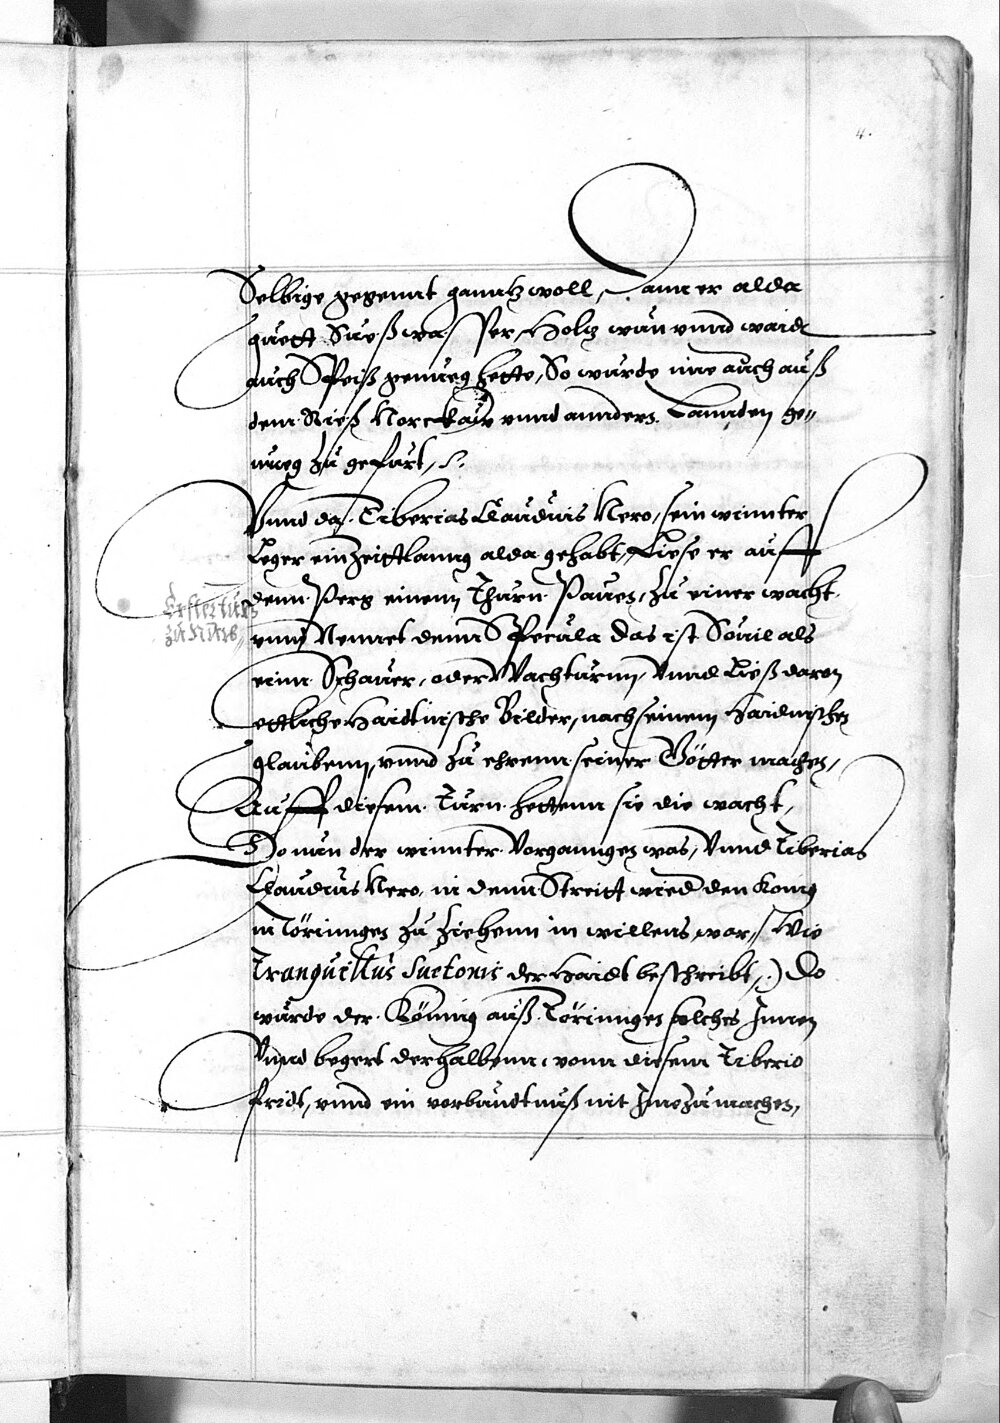 4.
Selbige gegennt ganntz woll, Dann er alda
guett Süeß wasser, Holtz wün vnnd waidt
auch Speiß genueg hette, So wurde ime auch auß
dem Rieß Norckaw vnnd anndern Lannden ge„
nueg zu gefürt,
Vnnd das Tiberias Claudius Nero, sein winnter
Leger ein Zeittlanng alda gehabt, Liese er auff
denn Perg einenn Thurn Pauen, zu einer wacht
vnnd Nennet denn Specula das ist Souil als
einn Schauer, oder Wachturnn, Vnnd Ließ daran
ettliche Haidtnische Bilder, nach seinem Haidnischen
glaubenn, vnnd zu ehrenn seiner Götter machen,
Auff diesem Turn hettenn sie die wacht,
Do nun der winnter Vorganngen was, Vnnd Tiberias
Claudius Nero, in denn Streitt wied den König
in Töringen zu Ziehenn in willens war, Wie
Tranquillus Suetonis der Haidt beschreibt, Do
würde der König auß Töringen solches Innen
Vnnd begert derhalbenn, vonn diesem Tiberio
fridt, vnnd ein verbündtnuß mit Ime zu machen,
Erster turn
zu Nürb„